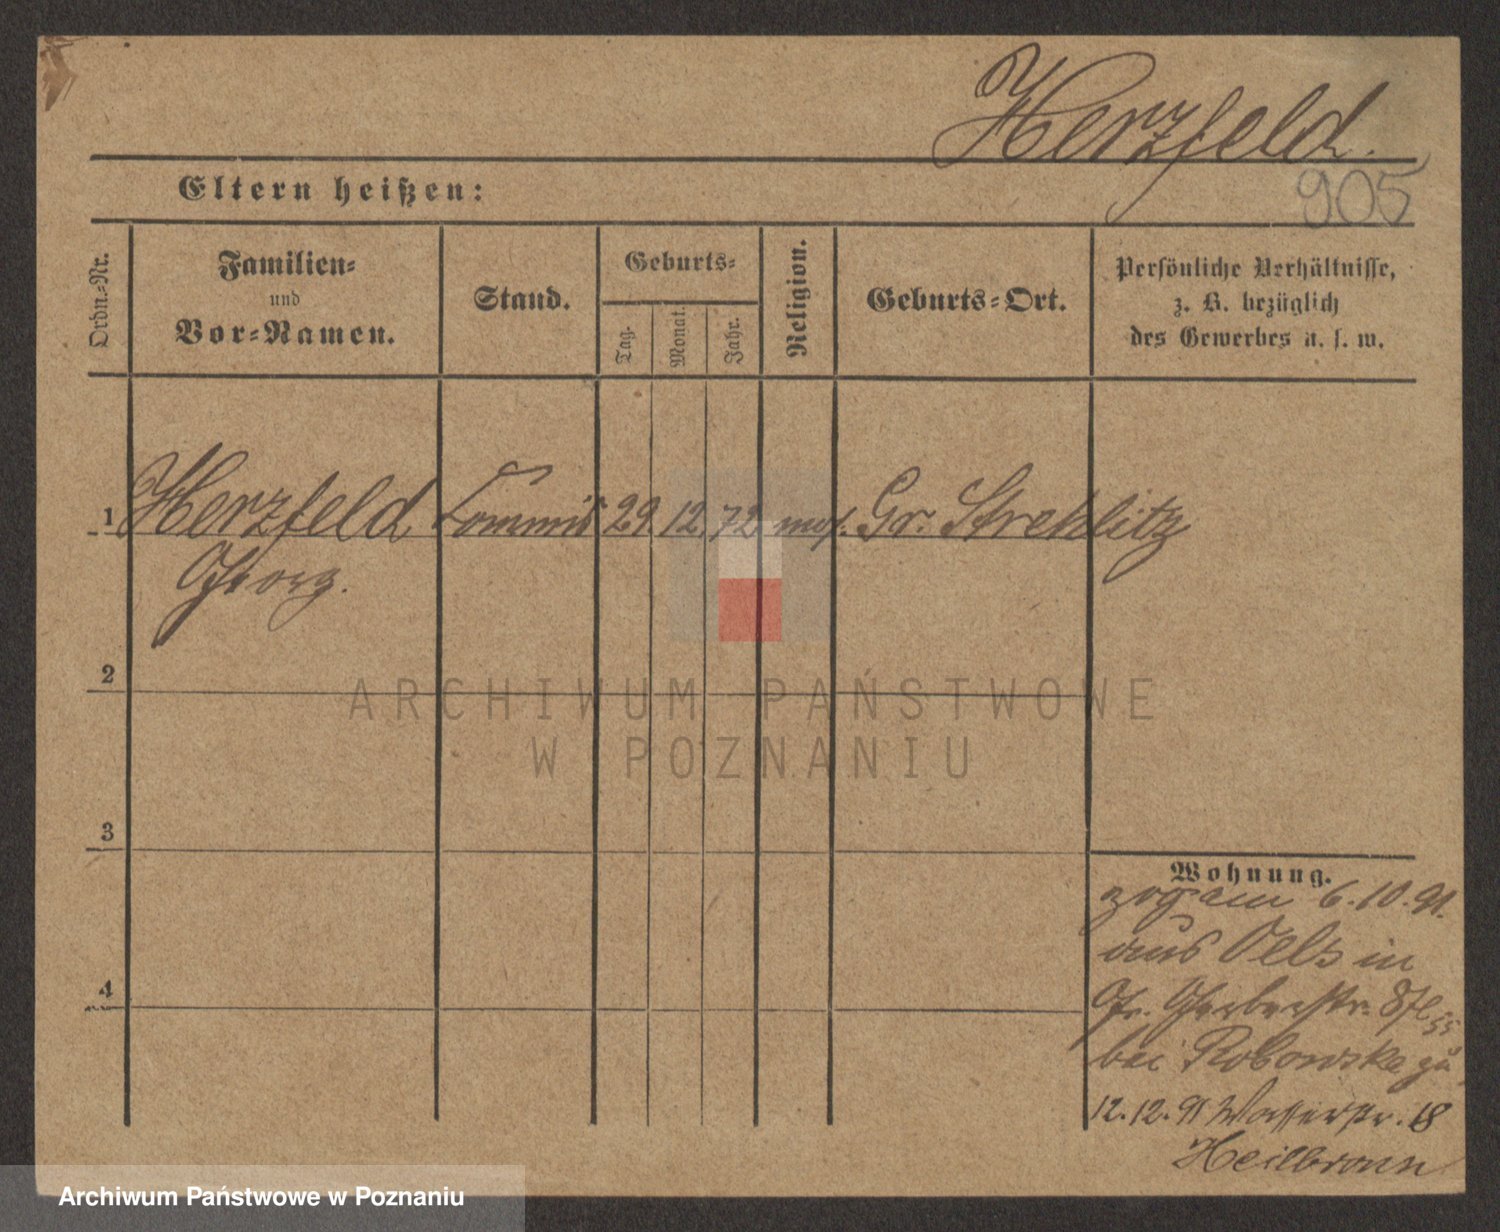 Herzfeld.
905
Eltern heißen:
Ordn.=Nr.
Familien=
und
Vor=Namen.
Stand.
Geburts=
Tag.
Monat.
Jahr.
Religion.
Geburts=Ort.
Persönliche Verhältnisse,
z. B. bezüglich
des Gewerbes u. s. w.
1 Herzfeld Commis 29. 12. 72 mos. Gr. Strehlitz
Georg.
2
3
4
Wohnung.
zog am 6.10.91.
aus Oels in
Gr. Gerberstr. 8
bei Robowska zu
12.12.91 Wasserstr. 18
Heilbronn
ARCHIWUM PAŃSTWOWE
W POZNANIU
Archiwum Państwowe w Poznaniu